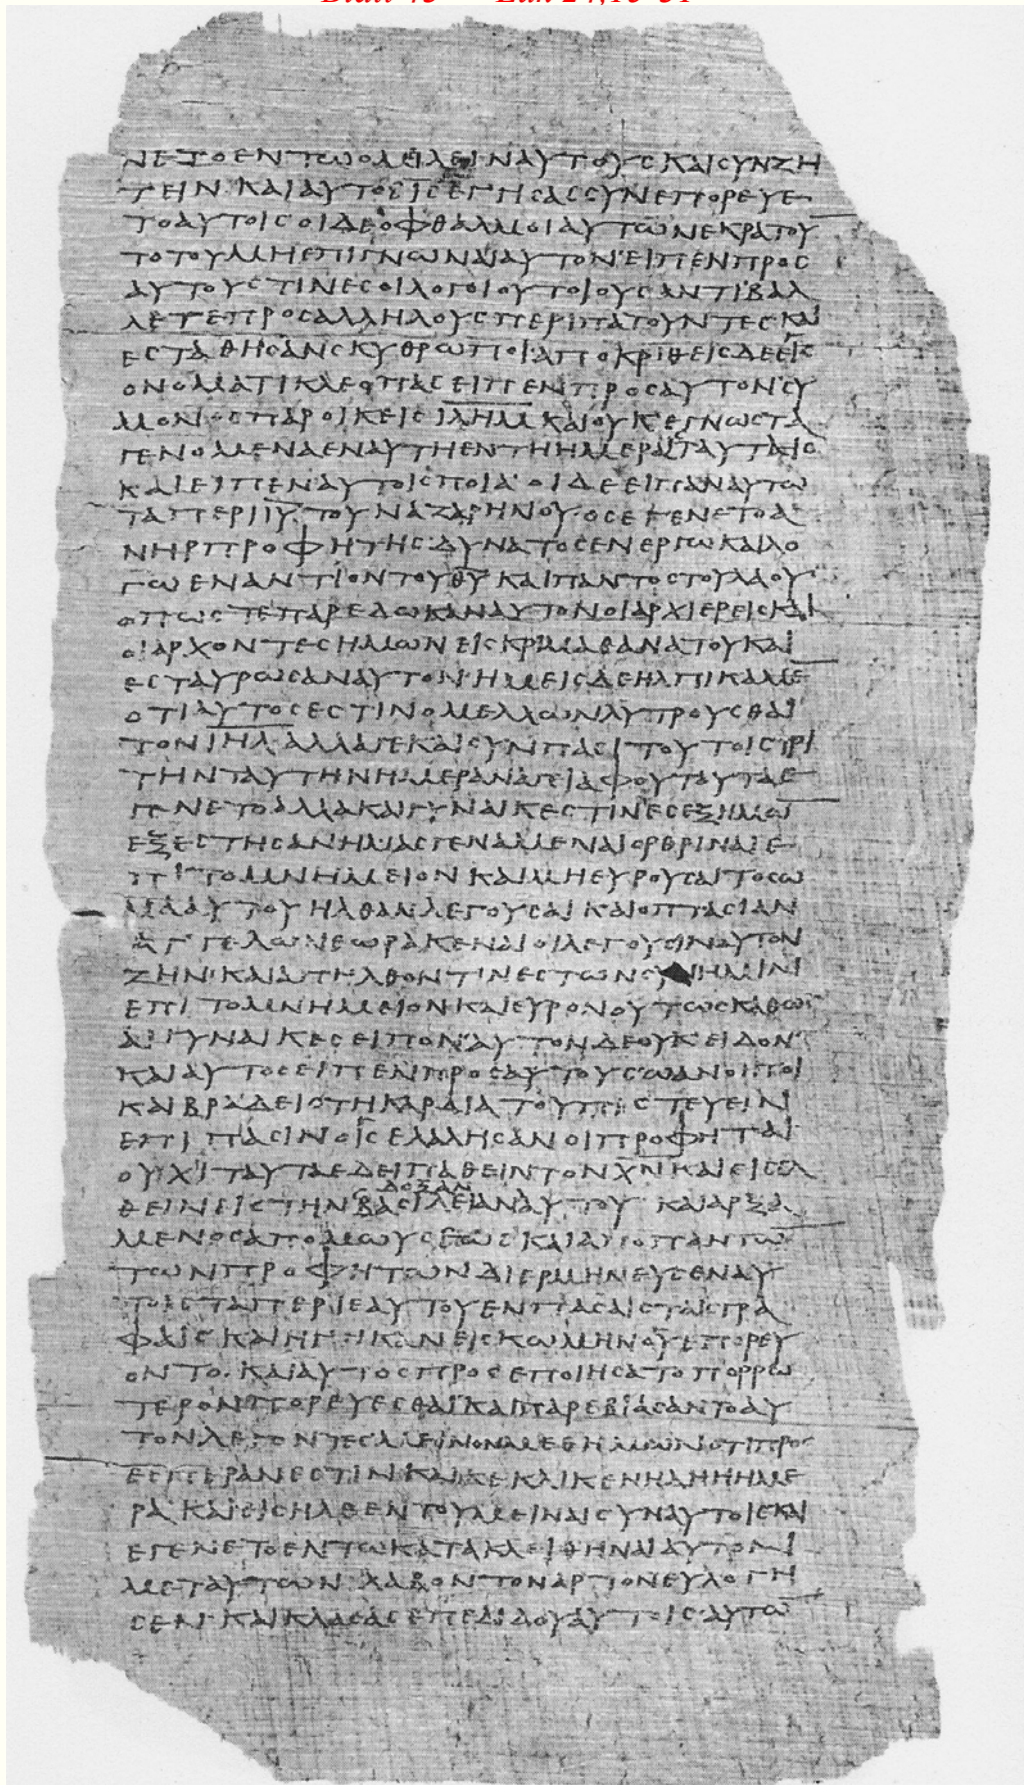 Blatt Luk 24,15-31
ΝΕΤΟΕΝΤΩΟΜΕΙΛΕΙΝΑΥΤΟΥCΚΑΙCΥΝΖΗ
ΤΕΙΝ ΚΑΙΑΥΤΟCΙCΕΓΓΙCΑCCΥΝΕΠΟΡΕΥΕ
ΤΟΑΥΤΟΙCΟΙΔΕΟΦΘΑΛΜΟΙΑΥΤΩΝΕΚΡΑΤΟΥ
ΤΟΤΟΥΜΗΕΠΙΓΝΩΝΑΙΑΥΤΟΝ ΕΙΠΕΝΠΡΟC
ΑΥΤΟΥCΤΙΝΕCΟΙΛΟΓΟΙΟΥΤΟΙΟΥCΑΝΤΙΒΑΛ
ΛΕΤΕΠΡΟCΑΛΛΗΛΟΥCΠΕΡΙΠΑΤΟΥΝΤΕCΚΑΙ
ΕCΤΑΘΗCΑΝCΚΥΘΡΩΠΟΙ ΑΠΟΚΡΙΘΕΙCΔΕΕΙC
ΟΝΟΜΑΤΙΚΛΕΟΠΑCΕΙΠΕΝΠΡΟCΑΥΤΟΝ CΥ
ΜΟΝΟCΠΑΡΟΙΚΕΙCΙΛΗΜΚΑΙΟΥΚΕΓΝΩCΤΑ
ΓΕΝΟΜΕΝΑΕΝΑΥΤΗΕΝΤΗΗΜΕΡΑΙCΤΑΥΤΑΙC
ΚΑΙΕΙΠΕΝΑΥΤΟΙCΠΟΙΑ ΟΙΔΕΕΙΠΑΝΑΥΤΩ
ΤΑΠΕΡΙΙΥ ΤΟΥΝΑΖΑΡΗΝΟΥ ΟCΕΓΕΝΕΤΟΑ
ΝΗΡΠΡΟΦΗΤΗCΔΥΝΑΤΟCΕΝΕΡΓΩΚΑΙΛΟ
ΓΩΕΝΑΝΤΙΟΝΤΟΥΘΥ ΚΑΙΠΑΝΤΟCΤΟΥΛΑΟΥ
ΟΠΩCΤΕΠΑΡΕΔΩΚΑΝΑΥΤΟΝΟΙΑΡΧΙΕΡΕΙCΚΑΙ
ΟΙΑΡΧΟΝΤΕCΗΜΩΝΕΙCΚΡΙΜΑΘΑΝΑΤΟΥΚΑΙ
ΕCΤΑΥΡΩCΑΝΑΥΤΟΝ ΗΜΕΙCΔΕΗΛΠΙΚΑΜΕ
ΟΤΙΑΥΤΟCΕCΤΙΝΟΜΕΛΛΩΝΛΥΤΡΟΥCΘΑΙ
ΤΟΝΙΗΛ ΑΛΛΑΓΕΚΑΙCΥΝΠΑCΙΤΟΥΤΟΙCΤΡΙ
ΤΗΝΤΑΥΤΗΝΗΜΕΡΑΝΑΓΕΙΑΦΟΥΤΑΥΤΑΕ
ΓΕΝΕΤΟΑΛΛΑΚΑΙΓΥΝΑΙΚΕCΤΙΝΕCΕΞΗΜΩ
ΕΞΕCΤΗCΑΝΗΜΑCΓΕΝΑΜΕΝΑΙΟΡΘΡΙΝΑΙΕ
ΠΙ ΤΟΜΝΗΜΕΙΟΝΚΑΙΜΗΕΥΡΟΥCΑΙΤΟCΩ
ΜΑΑΥΤΟΥΗΛΘΑΝΛΕΓΟΥCΑΙΚΑΙΟΠΤΑCΙΑΝ
ΑΓΓΕΛΩΝΕΩΡΑΚΕΝΑΙΟΙΛΕΓΟΥCΙΝΑΥΤΟΝ
ΖΗΝ ΚΑΙΑΠΗΛΘΟΝΤΙΝΕCΤΩΝCΥΝΗΜΙΝ
ΕΠΙ ΤΟΜΝΗΜΕΙΟΝΚΑΙΕΥΡΟΝΟΥΤΩCΚΑΘΩC
ΑΙΓΥΝΑΙΚΕCΕΙΠΟΝ ΑΥΤΟΝΔΕΟΥΚΕΙΔΟΝ
ΚΑΙΑΥΤΟCΕΙΠΕΝΠΡΟCΑΥΤΟΥCΩΑΝΟΗΤΟΙ
ΚΑΙΒΡΑΔΕΙCΤΗΚΑΡΔΙΑΤΟΥΠΙCΤΕΥΕΙΝ
ΕΠΙ ΠΑCΙΝΟΙCΕΛΑΛΗCΑΝΟΙΠΡΟΦΗΤΑΙ
ΟΥΧΙΤΑΥΤΑΕΔΕΙΠΑΘΕΙΝΤΟΝΧΝΚΑΙΕΙCΕΛ
ΔΟΞΑΝ
ΘΕΙΝΕΙCΤΗΝΒΑCΙΛΕΙΑΝΑΥΤΟΥ ΚΑΙΑΡΞΑ
ΜΕΝΟCΑΠΟΜΩΥCΕΩCΚΑΙΑΠΟΠΑΝΤΩ
ΤΩΝΠΡΟΦΗΤΩΝΔΙΕΡΜΗΝΕΥCΕΝΑΥ
ΤΟΙCΤΑΠΕΡΙΕΑΥΤΟΥΕΝΠΑCΑΙCΤΑΙCΓΡΑ
ΦΑΙC ΚΑΙΗΓΓΙΚΑΝΕΙCΚΩΜΗΝΟΥΕΠΟΡΕΥ
ΟΝΤΟ ΚΑΙΑΥΤΟCΠΡΟCΕΠΟΙΗCΑΤΟΠΟΡΡΩ
ΤΕΡΟΝΠΟΡΕΥΕCΘΑΙ ΚΑΙΠΑΡΕΒΙΑCΑΝΤΟΑΥ
ΤΟΝΛΕΓΟΝΤΕCΜΕΙΝΟΝΜΕΘΗΜΩΝΟΤΙΠΡΟC
ΕCΠΕΡΑΝΕCΤΙΝΚΑΙΚΕΚΛΙΚΕΝΗΔΗΗΗΜΕ
ΡΑ ΚΑΙΕΙCΗΛΘΕΝΤΟΥΜΕΙΝΑΙCΥΝΑΥΤΟΙCΚΑΙ
ΕΓΕΝΕΤΟΕΝΤΩΚΑΤΑΚΛΕΙΘΗΝΑΙΑΥΤΟΝ
ΜΕΤΑΥΤΩΝ ΛΑΒΩΝΤΟΝΑΡΤΟΝΕΥΛΟΓΗ
CΕΝ ΚΑΙΚΛΑCΑCΕΠΕΔΙΔΟΥΑΥΤΟΙCΑΥΤΩ